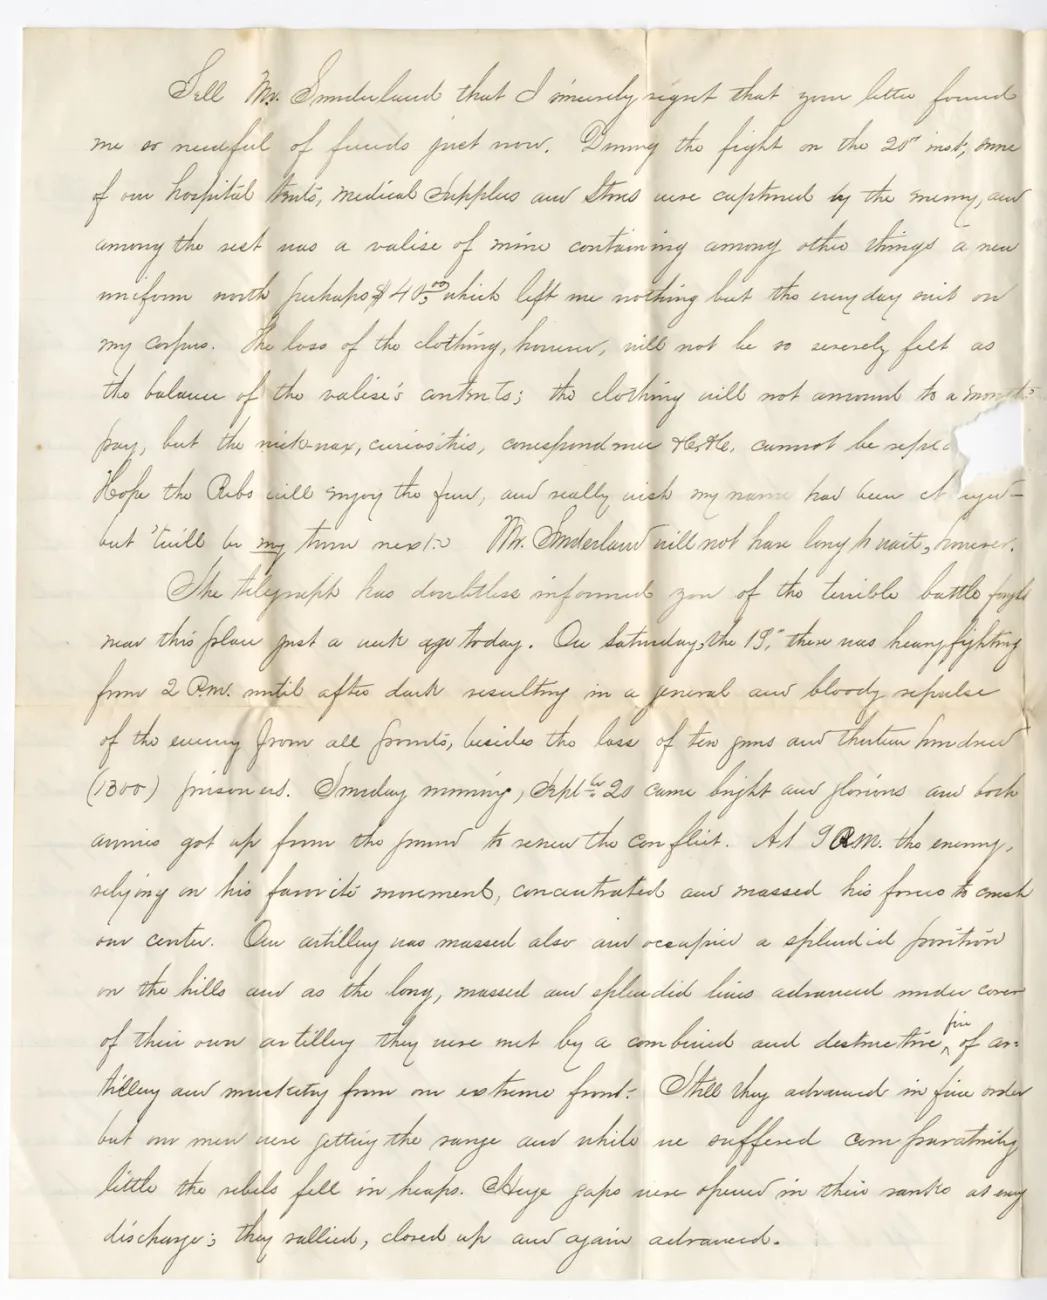 Tell Mr. Sunderland that I sincerely regret that your letter found
me so needful of funds just now. During the fight on the 20" inst, some
of our hospital tents, medical Supplies and Stores were captured by the enemy, and
among the rest was a valise of mine containing among other things a new
uniform worth perhaps $40.00 which left me nothing but the every day suit on
my corpus. The loss of the clothing, however, will not be so severely felt as
the balance of the valise's contents; the clothing will not amount to a month's
pay, but the nick-nax, curiosities, correspondence &c, &c, cannot be
Hope the Rebs will enjoy the fun, and really wish my name had been
but 'twill be my turn next. Mr. Sunderland will not have long to wait, however.
The telegraph has doubtless informed you of the terrible battle fought
near this place just a week ago today. On Saturday, the 19," there was heavy fighting
from 2 P.M. until after dark resulting in a general and bloody repulse
of the enemy from all points, besides the loss of ten guns and thirteen hundred
(1300) prisoners. Sunday morning, Sept 20 came bright and glorious and both
armies got up from the ground to renew the conflict. At 9 A.M. the enemy,
relying on his favorite movement, concentrated and massed his forces to crush
our center. Our artillery was massed also and occupied a splendid position
on the hills and as the long, massed and splendid lines advanced under cover
of their own artillery they were met by a combined and destructive fire of ar-
tillery and musketry from our extreme front. Still they advanced in fine order
but our men were getting the range and while we suffered comparatively
little the rebels fell in heaps. Huge gaps were opened in their ranks at every
discharge; they rallied, closed up and again advanced.